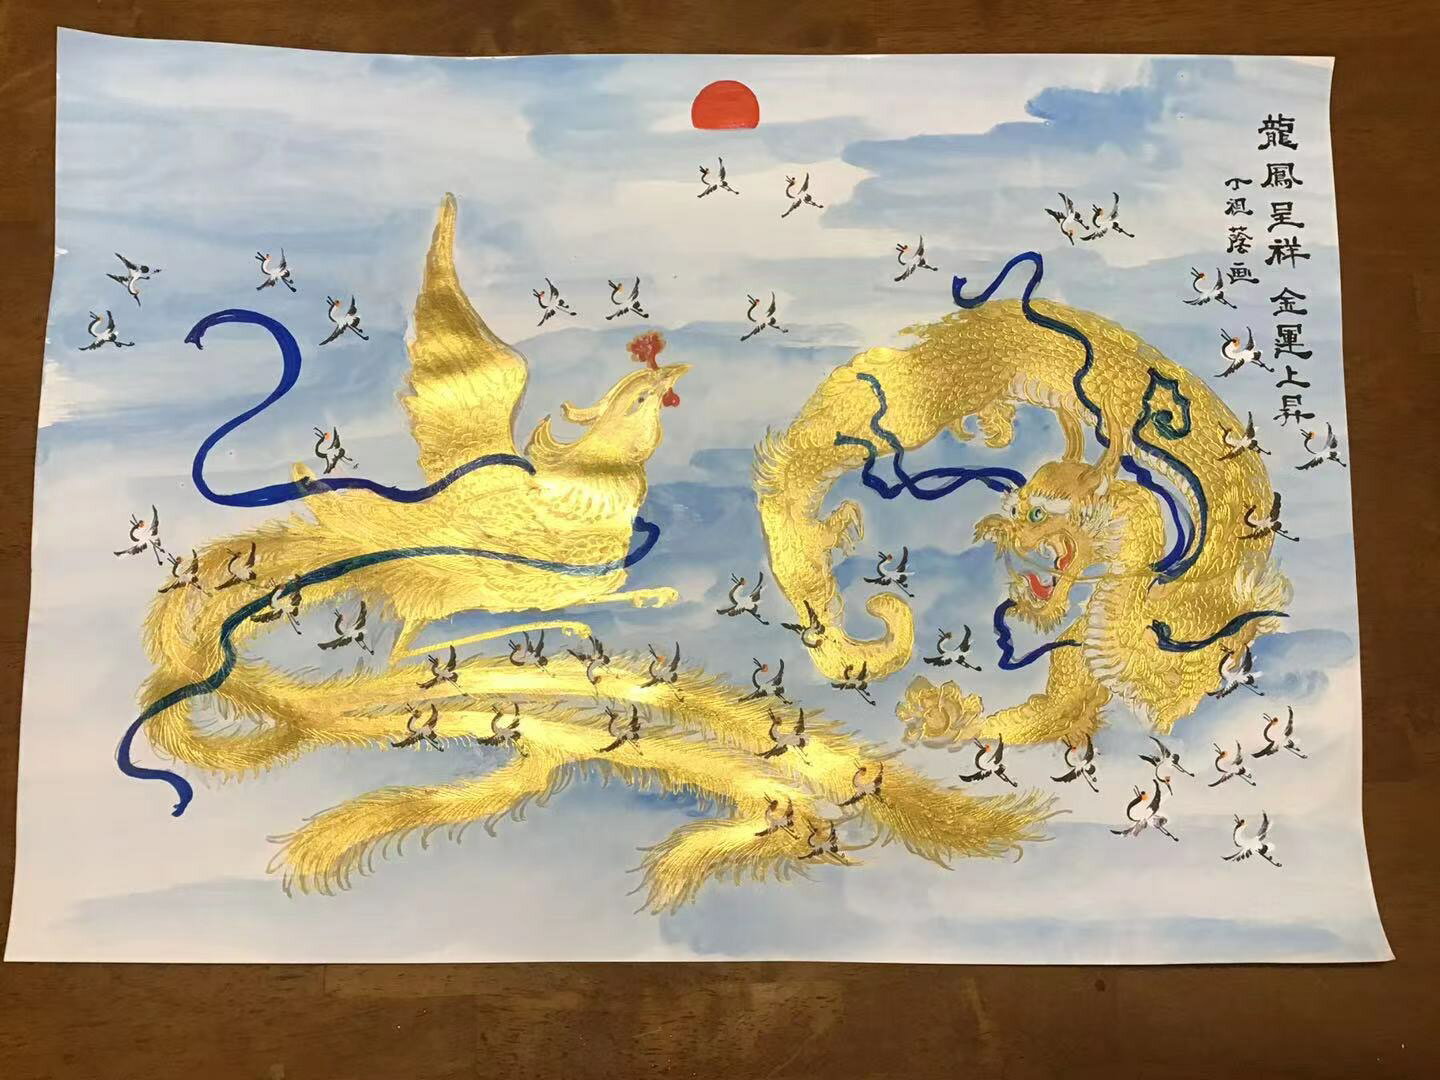 龍鳳呈祥 金運上昇
丁祖蔭画